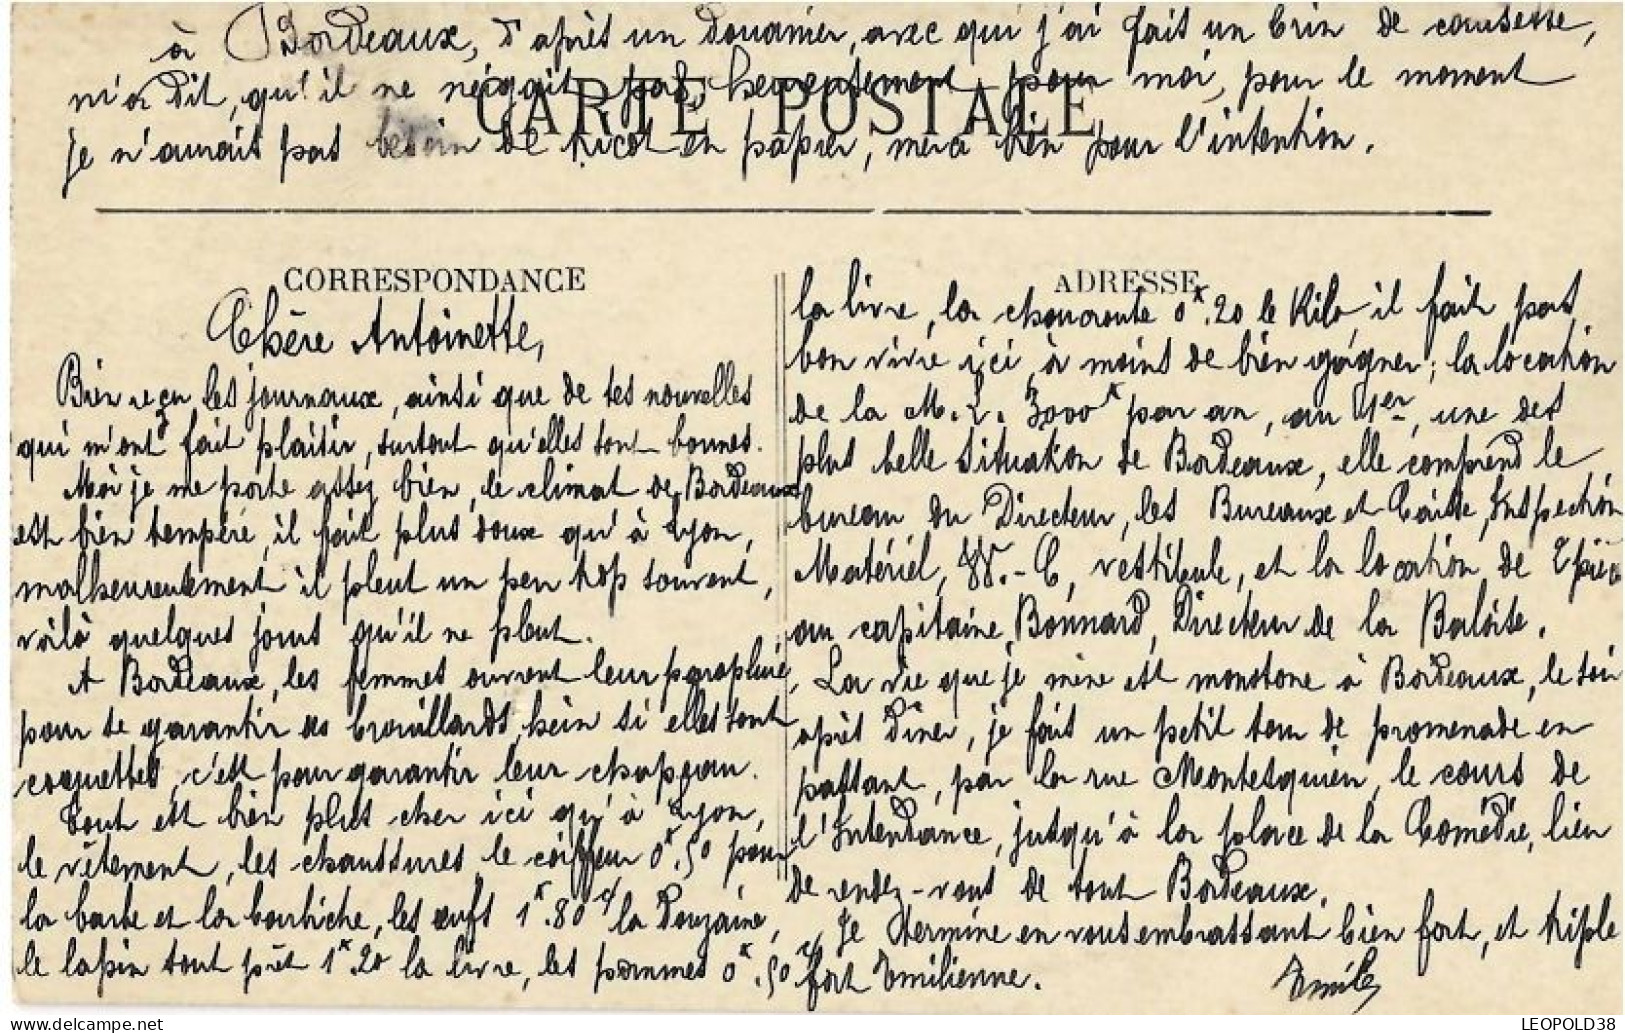 à Bordeaux, d'après un Douanier, avec qui j'ai fait un brin de causesse,
m'a dit, qu'il ne neigait pas, heureusement pour moi, pour le moment
CARTE POSTALE
je n'aurais pas besoin de tricot en papier, merci bien pour l'intention.
CORRESPONDANCE
Chère Antoinette,
Bien reçu les journaux, ainsi que de tes nouvelles
qui m'ont fait plaisir, surtout qu'elles sont bonnes.
Moi je me porte assez bien, le climat de Bordeaux
est bien tempéré, il fait plus doux qu'à Lyon,
malheureusement il pleut un peu trop souvent,
voilà quelques jours qu'il ne pleut.
A Bordeaux, les femmes ouvrent leur parapluie,
pour se garantir des brouillards, hein si elles sont
coquettes, c'est pour garantir leur chapeau.
Tout est bien plus cher ici qu'à Lyon,
le vêtement, les chaussures, le coiffeur 0f.50 pour
la barbe et la barbiche, les œufs 1f.80 la Douzaine,
le lapin tout prêt 1f.20 la livre, les pommes 0f.50
ADRESSE
la livre, la choucroute 0f.20 le Kilo, il fait pas
bon vivre ici, à moins de bien gagner; la location
de la M.L. 3000f par an, au 1er, une des
plus belle situation de Bordeaux, elle comprend le
bureau du Directeur, les Bureaux et Caisse, Inspection
Matériel, W.-C, vestibule, et la location de
au capitaine, Bonnard, Directeur de la Baloise.
La vie que je mène est monotone à Bordeaux, le soir
après Dîner, je fais un petit tour de promenade en
passant, par la rue Montesquieu, le cours de
l'Intendance, jusqu'à la place de la Comédie, lieu
de rendez-vous de tout Bordeaux.
Je termine en vous embrassant bien fort, et triple
fort Emilienne.
Emile
LEOPOLD38